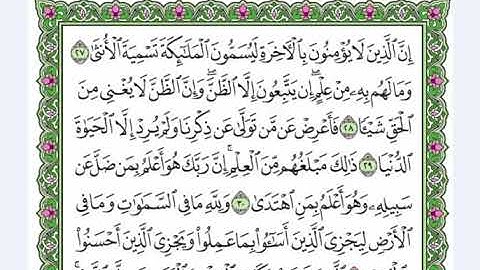 إِنَّ ٱلَّذِينَ لَا يُؤْمِنُونَ بِٱلْأَخِرَةِ لَيُسَمُّونَ ٱلْمَلَـٰٓئِكَةَ تَسْمِيَةَ ٱلْأُنثَىٰ ٢٧
وَمَا لَهُم بِهِۦ مِنْ عِلْمٍ ۖ إِن يَتَّبِعُونَ إِلَّا ٱلظَّنَّ ۖ وَإِنَّ ٱلظَّنَّ لَا يُغْنِى مِنَ
ٱلْحَقِّ شَيْـًٔا ٢٨ فَأَعْرِضْ عَن مَّن تَوَلَّىٰ عَن ذِكْرِنَا وَلَمْ يُرِدْ إِلَّا ٱلْحَيَوٰةَ
ٱلدُّنْيَا ٢٩ ذَٰلِكَ مَبْلَغُهُم مِّنَ ٱلْعِلْمِ ۚ إِنَّ رَبَّكَ هُوَ أَعْلَمُ بِمَن ضَلَّ عَن
سَبِيلِهِۦ وَهُوَ أَعْلَمُ بِمَنِ ٱهْتَدَىٰ ٣٠ وَلِلَّهِ مَا فِى ٱلسَّمَـٰوَٰتِ وَمَا فِى
ٱلْأَرْضِ لِيَجْزِىَ ٱلَّذِينَ أَسَـٰٓـُٔوا۟ بِمَا عَمِلُوا۟ وَيَجْزِىَ ٱلَّذِينَ أَحْسَنُوا۟